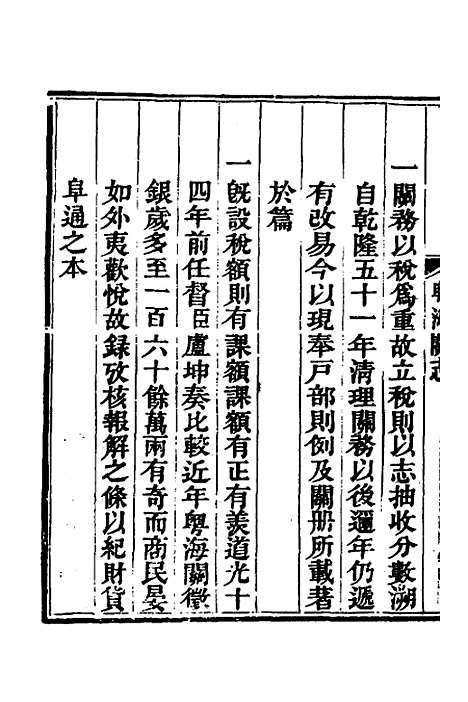 粵海關志
一關務以稅爲重故立稅則以志抽收分數溯
自乾隆五十一年清理關務以後邇年仍遞
有改易今以現奉戸部則例及關册所載著
於篇
一旣設稅額則有課額課額有正有羨道光十
四年前任督臣盧坤奏比較近年粵海關徵
銀歲多至一百六十餘萬兩有奇而商民晏
如外夷歡悅故録攷核報解之條以紀財貨
阜通之本